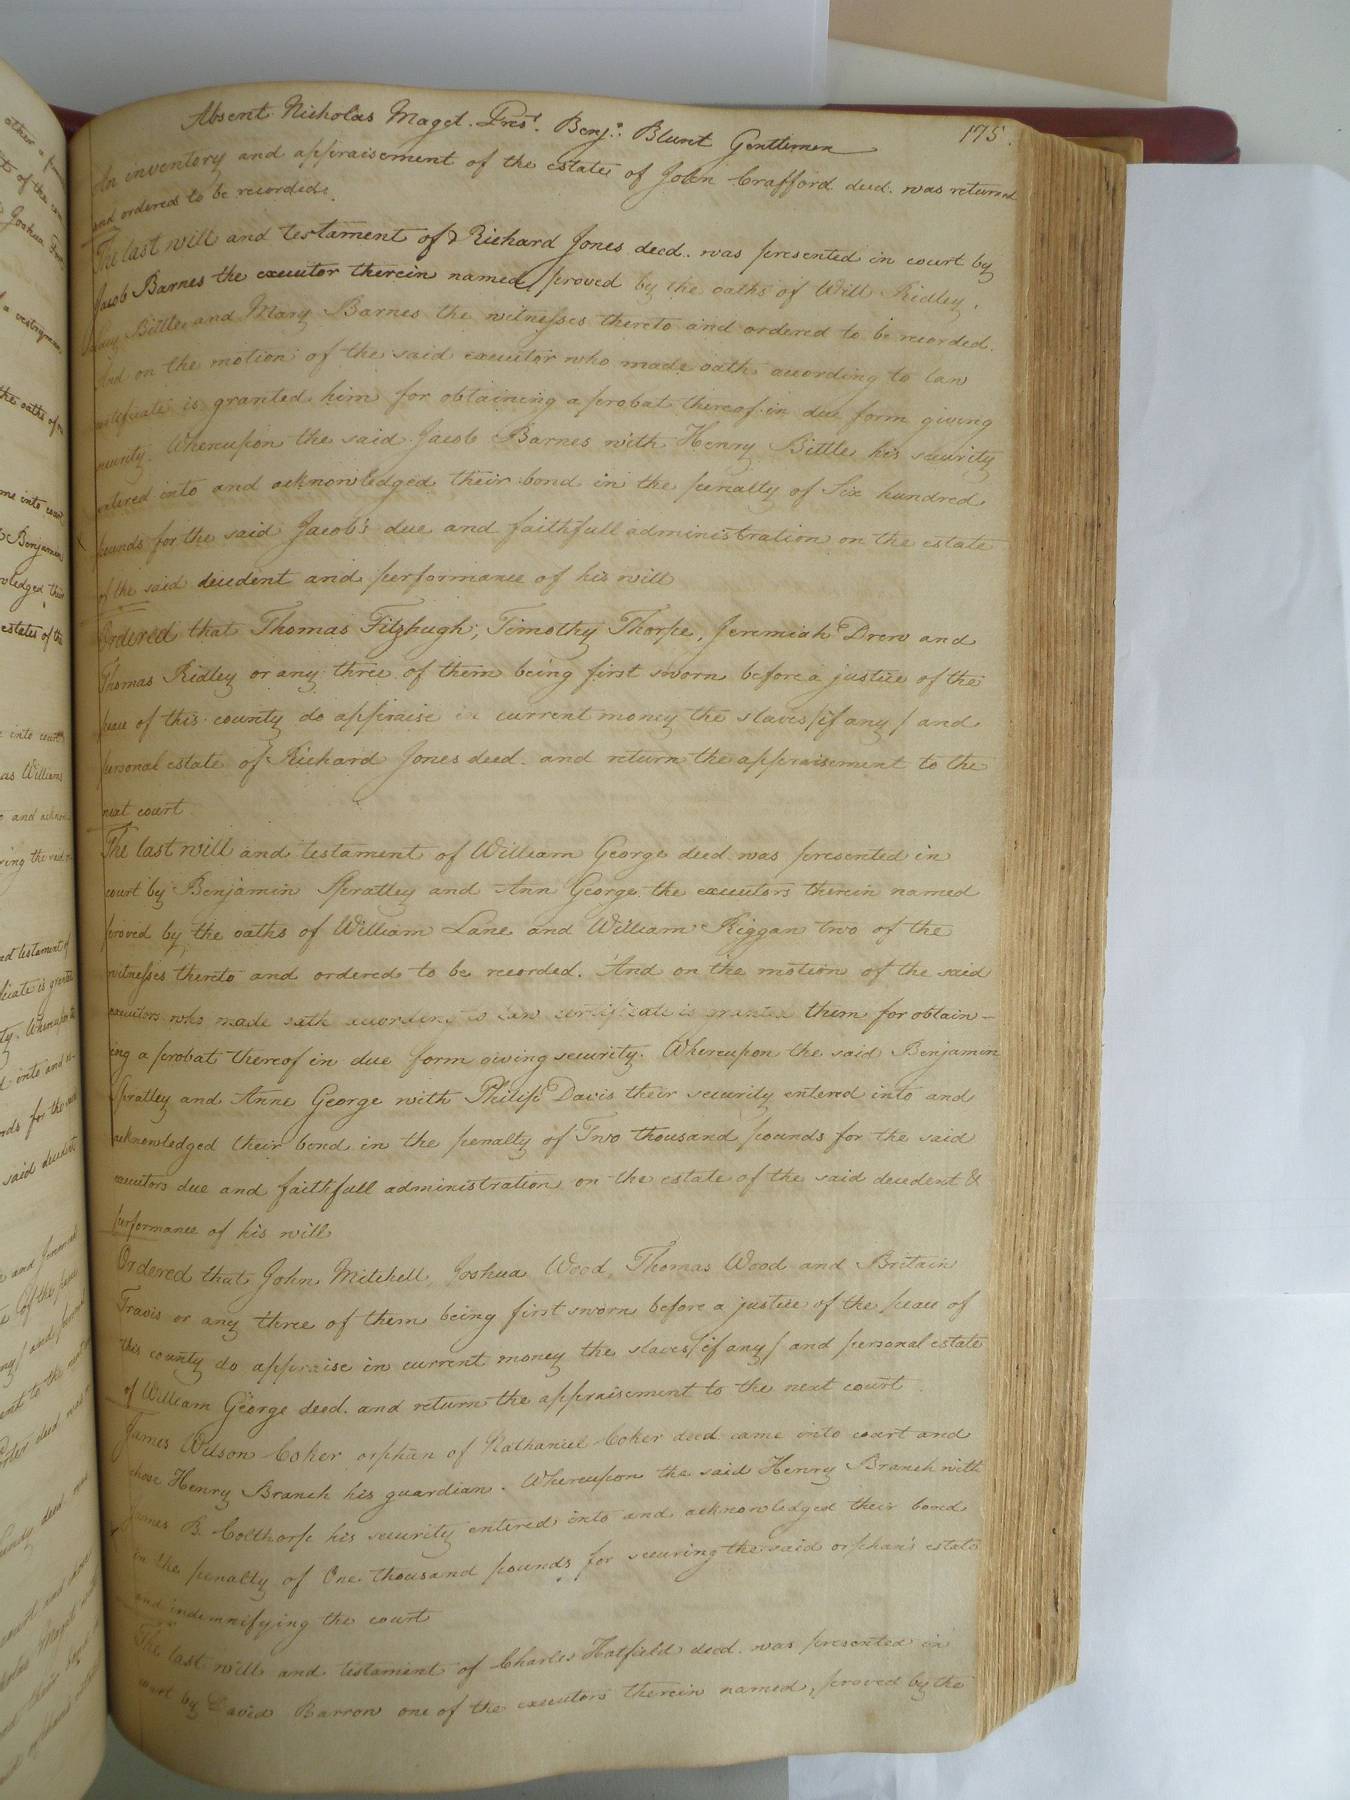 175.
Absent Nicholas Maget. Prest. Benj.n Blunt Gentlemen
An inventory and appraisement of the estate of John Crafford deed. was returned
and ordered to be recorded.
The last will and testament of Richard Jones deed. was presented in court by
Jacob Barnes the executor therein named, proved by the oaths of Will Ridley,
Bittle and Mary Barnes the witnesses thereto and ordered to be recorded.
And on the motion of the said executor who made oath according to law
certificate is granted him for obtaining a probat thereof in due form giving
security. Whereupon the said Jacob Barnes with Henry Bittle his security
entered into and acknowledged their bond in the penalty of Six hundred
pounds for the said Jacob's due and faithfull administration on the estate
of the said decedent and performance of his will
Ordered that Thomas Fitzhugh, Timothy Thorpe, Jeremiah Drew and
Thomas Ridley or any three of them being first sworn before a justice of the
peace of this county do appraise in current money the slaves /if any/ and
personal estate of Richard Jones deed. and return the appraisement to the
next court
The last will and testament of William George deed was presented in
court by Benjamin Spratley and Ann George the executors therein named
proved by the oaths of William Lane and William Riggan two of the
witnesses thereto and ordered to be recorded. And on the motion of the said
executors who made oath according to law certificate is granted them for obtain-
ing a probat thereof in due form giving security. Whereupon the said Benjamin
Spratley and Anne George with Philip Davis their security entered into and
acknowledged their bond in the penalty of Two thousand pounds for the said
executors due and faithfull administration on the estate of the said decedent &
performance of his will
Ordered that John Mitchell, Joshua Wood, Thomas Wood and Britain
Travis or any three of them being first sworn before a justice of the peace of
this county do appraise in current money the slaves /if any/ and personal estate
of William George deed. and return the appraisement to the next court.
James Wilson Coker orphan of Nathaniel Coker deed. came into court and
chose Henry Branch his guardian. Whereupon the said Henry Branch with
James B. Colthorp his security entered into and acknowledged their bond
in the penalty of One thousand pounds for securing the said orphan's estate
and indemnifying the court
The last will and testament of Charles Hatfield deed. was presented in
court by David Barrow one of the executors therein named, proved by the